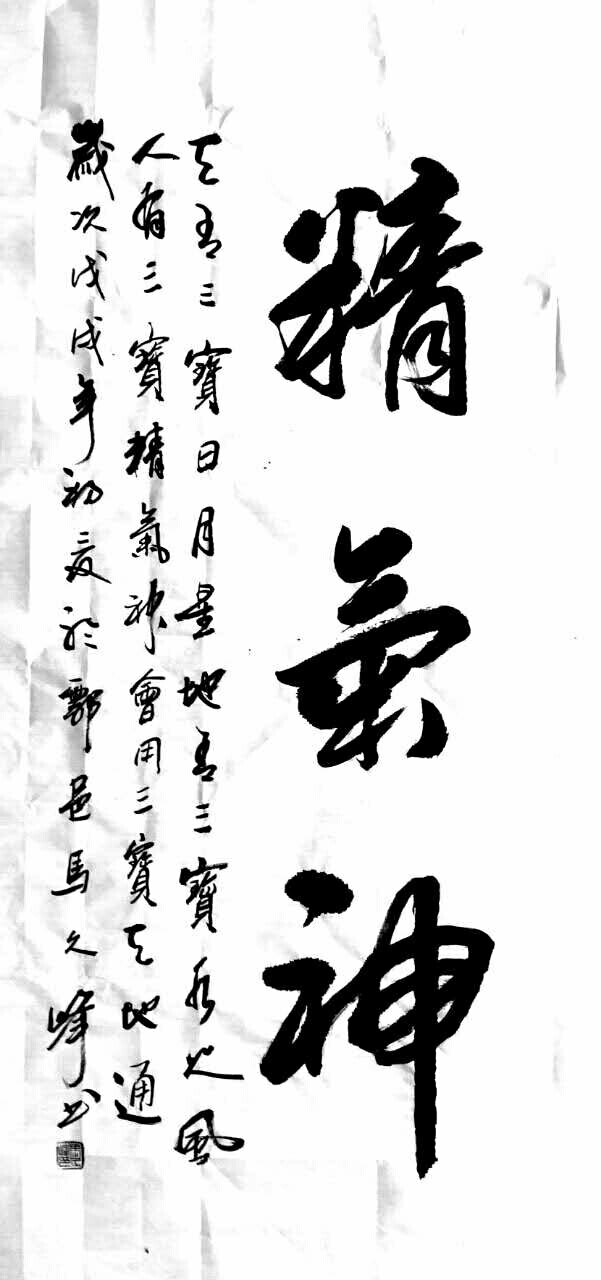 精氣神
天有三寶日月星地有三寶水火風
人有三寶精氣神會用三寶天地通
歲次戊戌年初夏於鄠邑馬久峰书